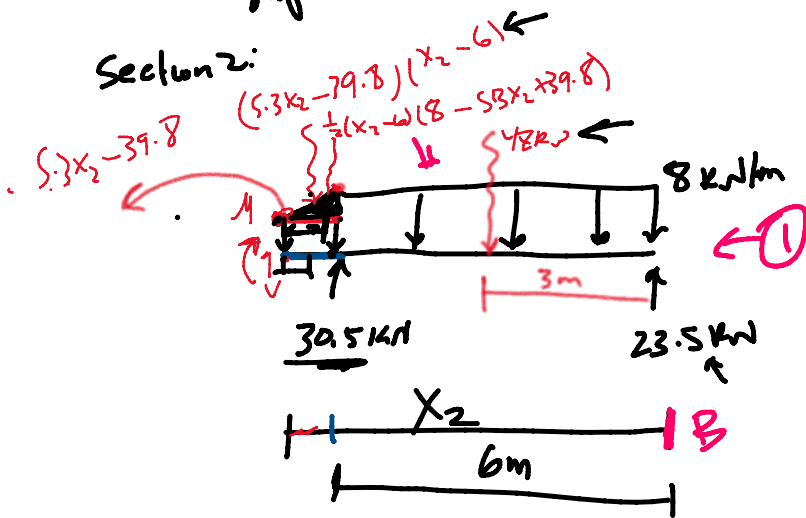 Section 2:
(5.3x₂-39.8)(x₂-6)
½(x₂-6)(8-5.3x₂+39.8)
5.3x₂-39.8
48kN
8 kN/m
M
1
V
3m
30.5KN
23.5KN
X₂
B
6m